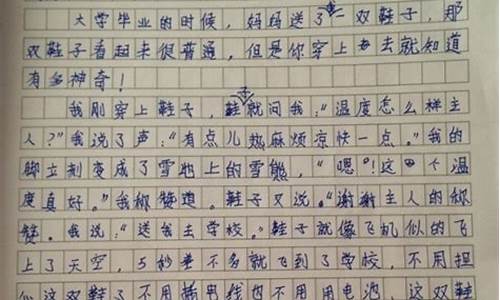 大学毕业的时候，妈妈送了一双鞋子，那
双鞋子看起来很普通，但是你穿上去就知道
有多神奇！
我刚穿上鞋子，鞋就问我：“温度怎么样主
人？”我说了声：“有点儿热麻烦凉快一点。”我的
脚立刻变成了雪地上的雪熊，“嗯！这个温
度真好。”我称赞道。鞋子又说。“谢谢主人的称
赞。我说：“送我去学校。”鞋子就像飞机似的飞
上了天空，5秒差不多就飞到了学校，不用担
心这双鞋子不用插电线也不用用电池，这双鞋